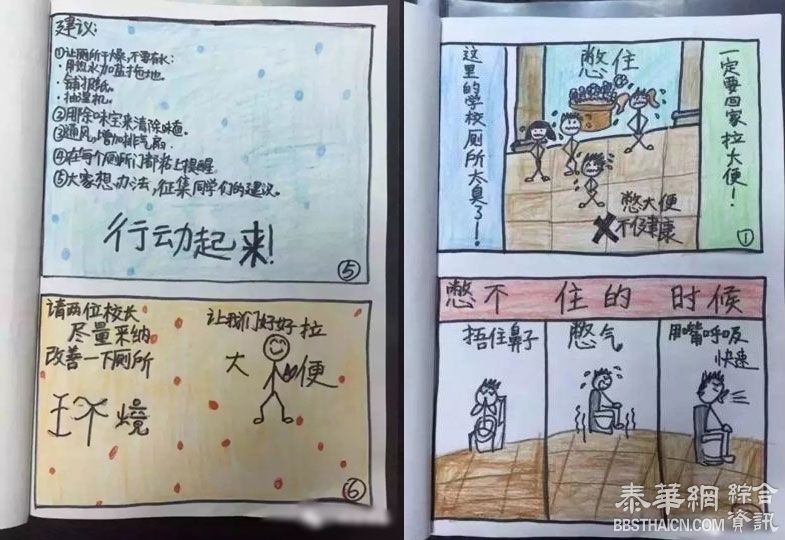 建议:
①让厕所干燥,不要有水:
·用热水加盐拖地。
·铺报纸。
·抽湿机。
②用除味宝来清除味道。
③通风,增加排气扇。
④在每个厕所门都粘上提醒。
⑤大家想办法,征集同学们的建议。
行动起来!
⑤
请两位校长
尽量采纳
改善一下厕所
环境
让我们好好拉
大便
⑥
一定要回家拉大便!
憋住
这里的学校厕所太臭了!
憋大便
✗不健康
①
憋不住的时候
捂住鼻子
憋气
用嘴呼吸
快速
泰華網 綜合資訊
BBSTHAICN.COM